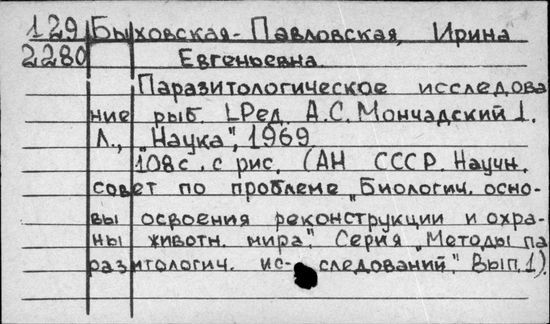 129 Быховская-Павловская, Ирина
2280 Евгеньевна.
Паразитологическое исследова
ние рыб. [Ред. А.С. Мончадский].
Л., „Наука", 1969
108с. с рис. (АН СССР. Научн.
совет по проблеме „Биологич. осно-
вы освоения реконструкции и охра-
ны животн. мира". Серия „Методы па
разитологич. ис-следований". Вып. 1).